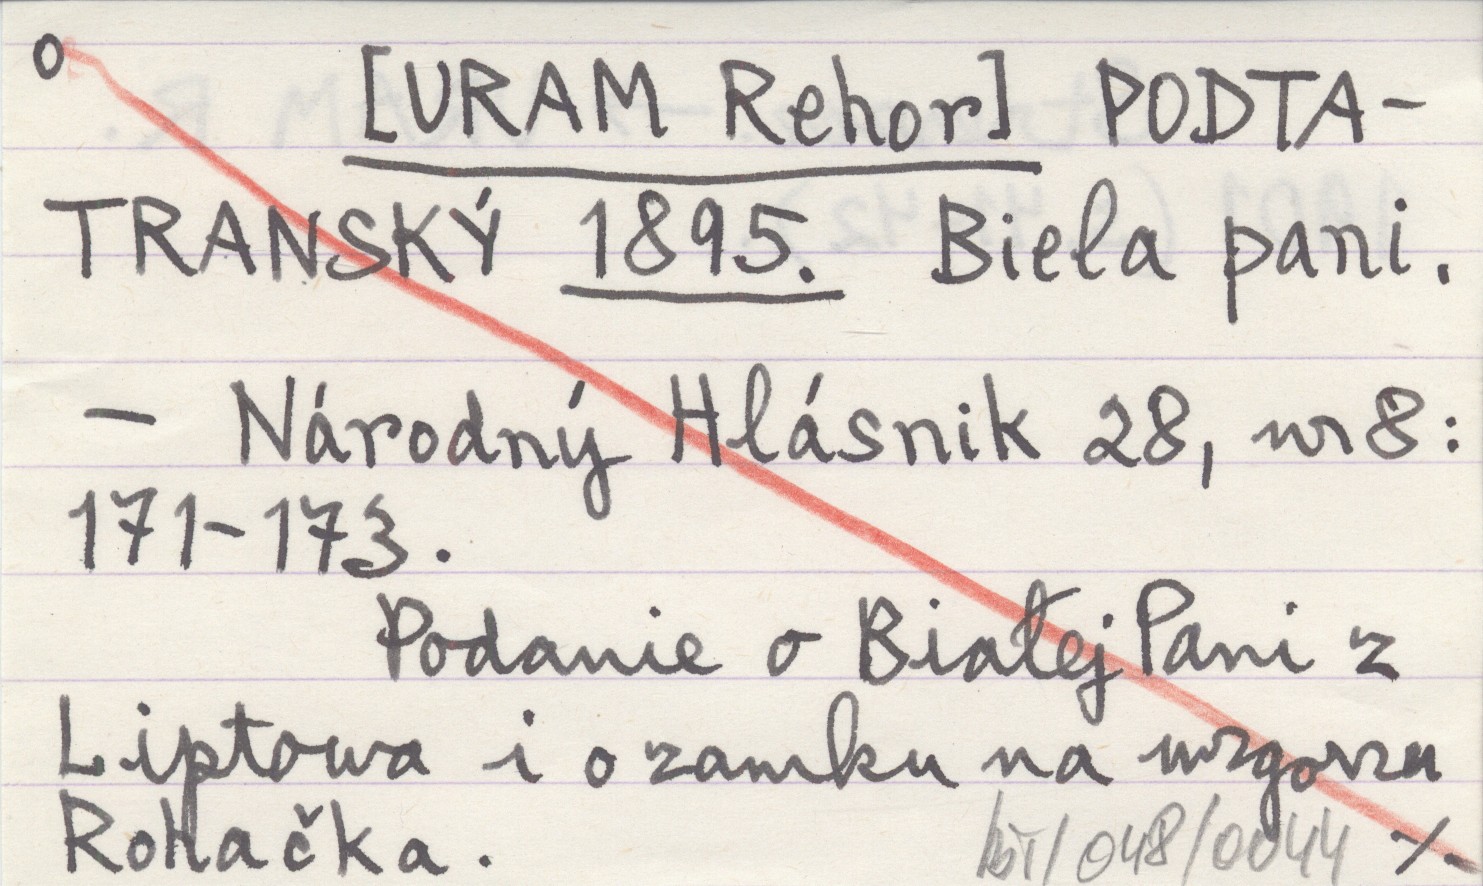 o [URAM Rehor] PODTA-
TRANSKÝ 1895. Biela pani.
– Národný Hlásnik 28, nr 8:
171-173.
Podanie o Białej Pani z
Liptowa i o zamku na wzgorzu
Rohačka.
/048/0044 ./.